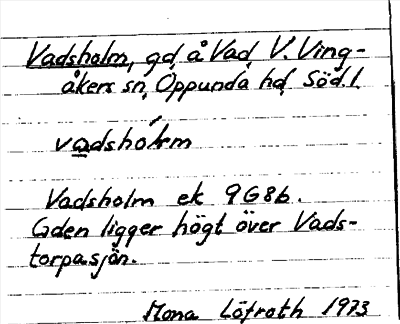 Vadsholm, gd å Vad, V. Ving-
åkers sn, Oppunda hd, Söd.l.
vadshòlm
Vadsholm ek 9G8b.
Gden ligger högt över Vads-
torpasjön.
Mona Löfroth 1973